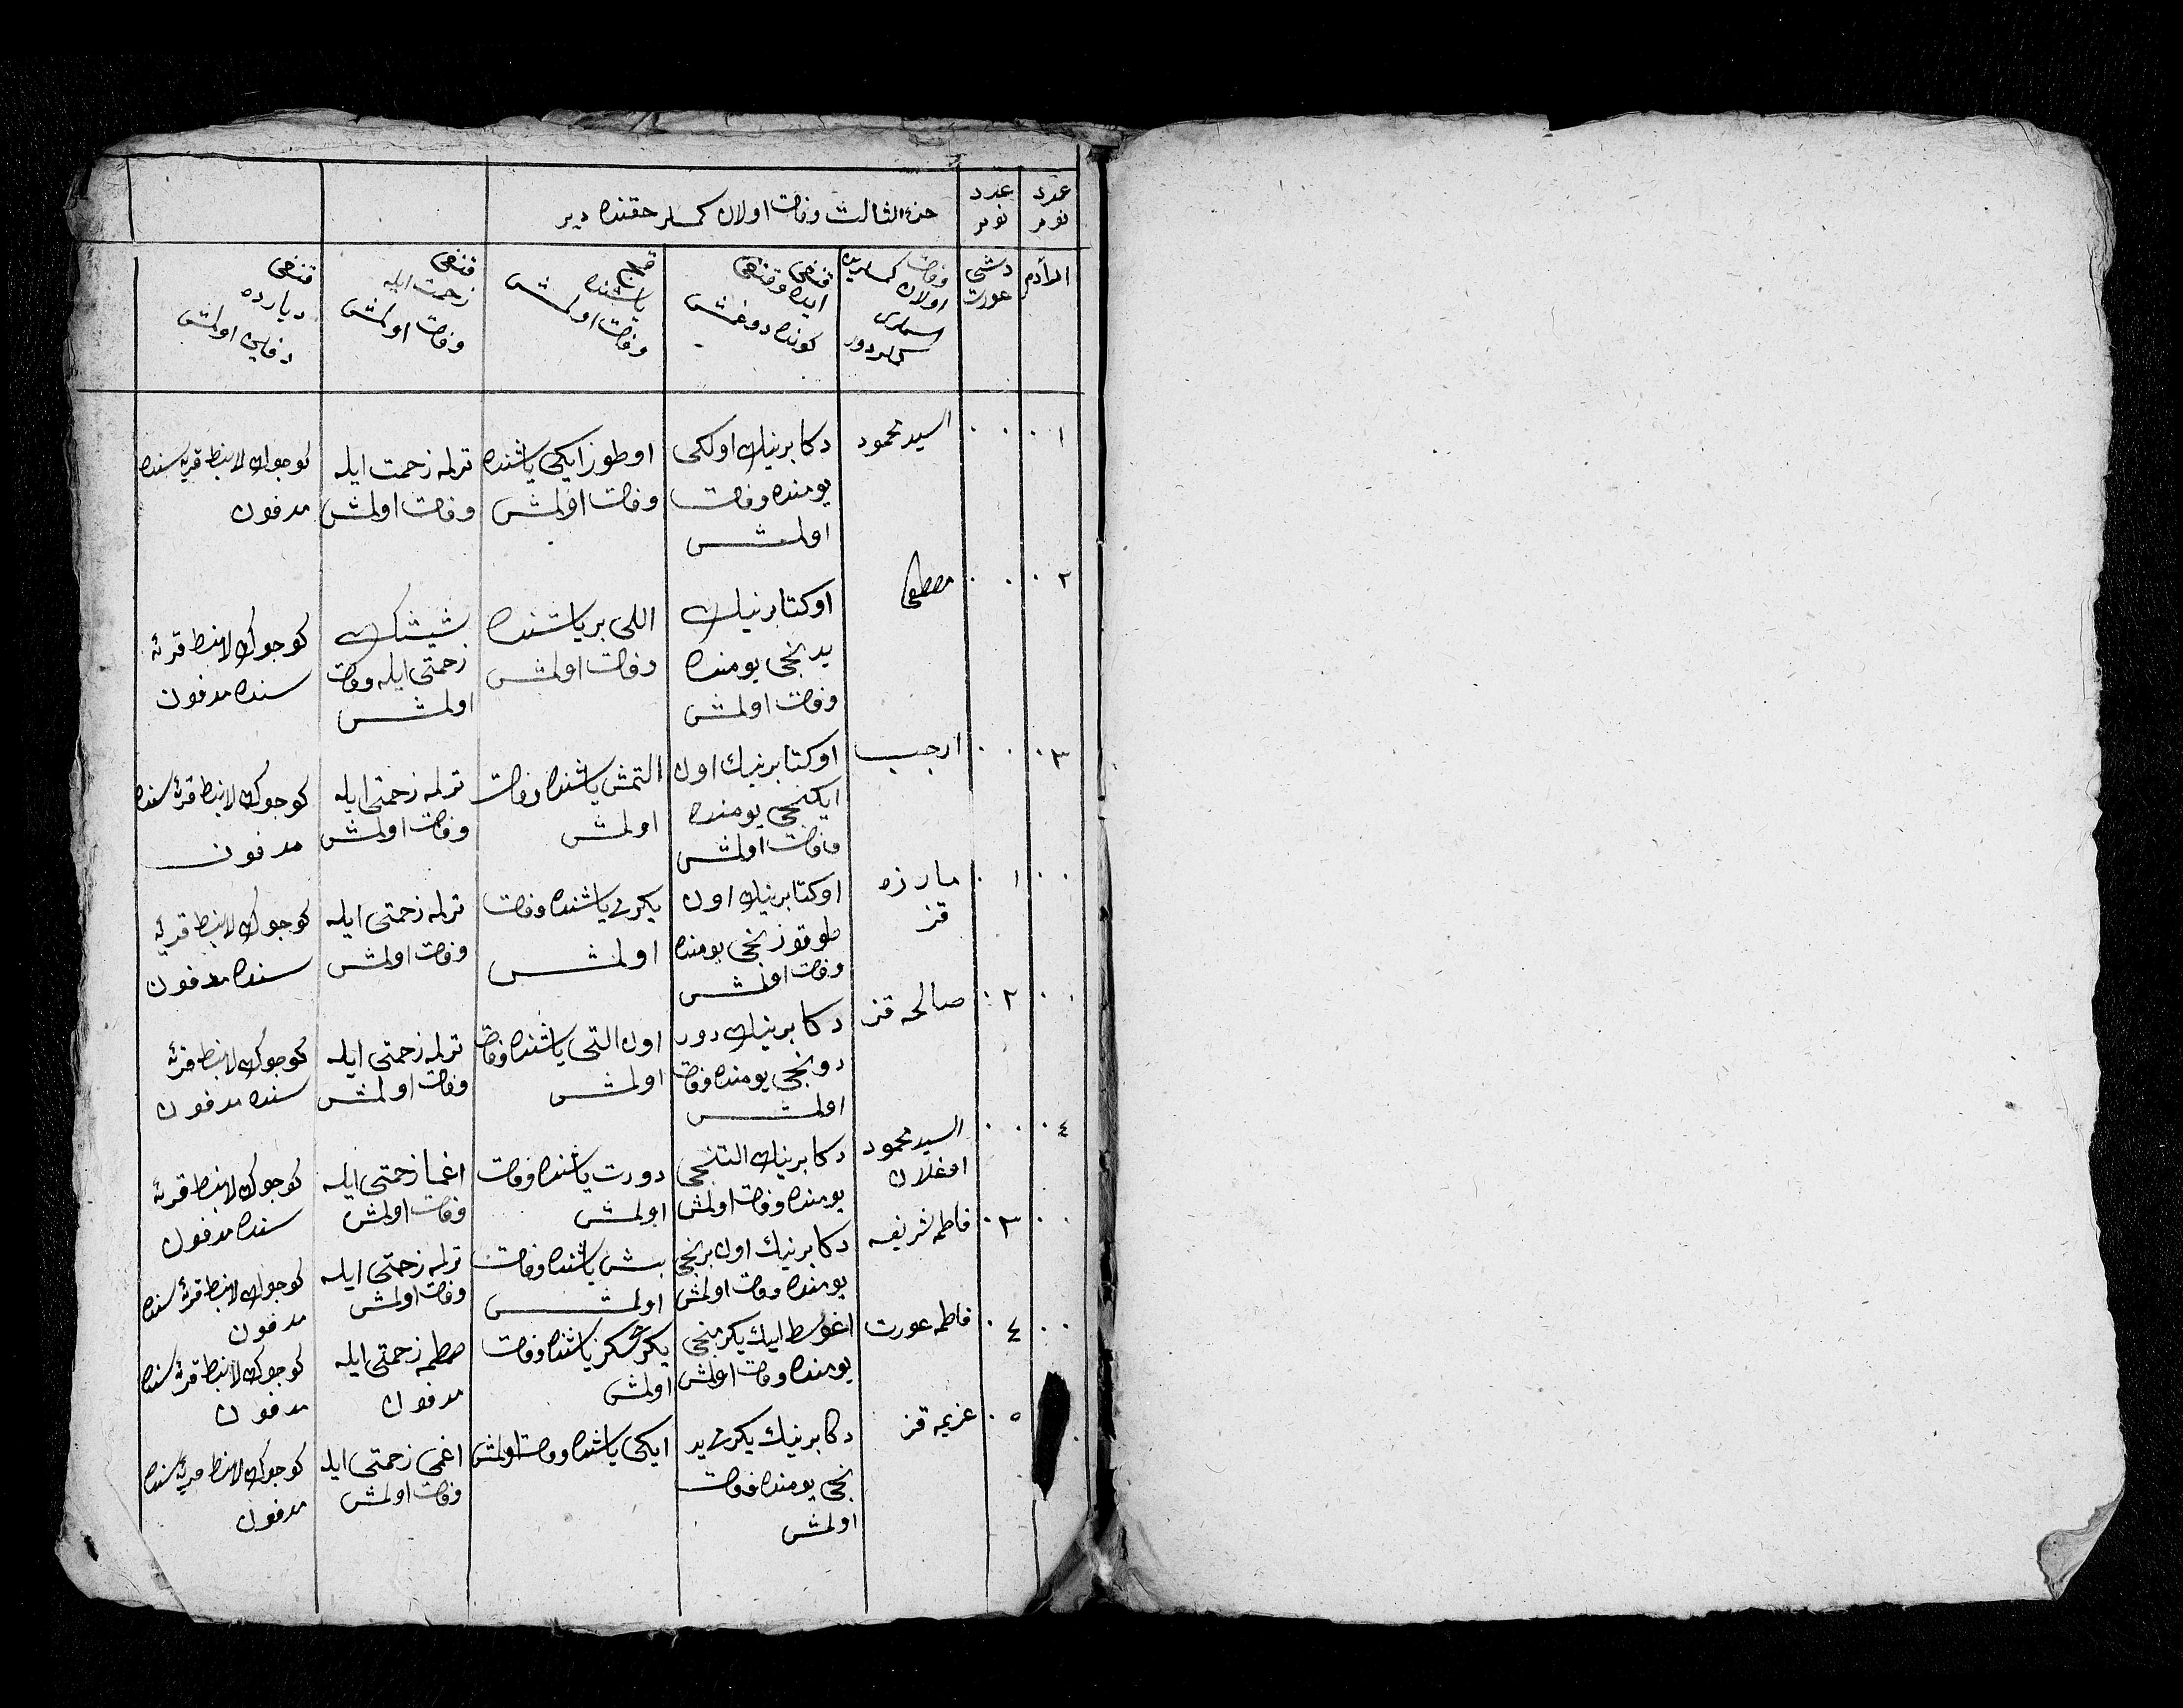 عدد نومر
عدد نومر
جزء الثالث وفات اولان كمسلر حقنده در
ار آدم
دشى عورت
وفات كمسلرنيڭ
اولان
اسملرى
كملردور
قنغى
ايده وقنغى
كونده دوغمش
قاچ
ياشنده
وفات اولمش
قنغى
زحمت ايله
وفات اولمش
قنغى
ديارده
دفايى اولمش
١
السيد محمود
دكابرنيك اولكى
يومنده وفات
اولمش
اوطوز ايكى ياشنده
وفات اولمش
ترله زحمت ايله
وفات اولمش
كوجوك لانبط قريه سنده
مدفون
٢
مصطفى
اوكتابرنيك
يدنجى يومنده
وفات اولمش
اللى بر ياشنده
وفات اولمش
شيشك
زحمتى ايله وفات
اولمش
كوجوك لانبط قريه
سنده مدفون
٣
ارجب
اوكتابرنيك اون
ايكنجى يومنده
وفات اولمش
التمش ياشنده وفات
اولمش
ترله زحمتى ايله
وفات اولمش
كوجوك لانبط قريه سنده
مدفون
١
مارزه
قز
اوكتابرنيك اون
طوقوزنجى يومنده
وفات اولمش
يكرمى ياشنده وفات
اولمش
ترله زحمتى ايله
وفات اولمش
كوجوك لانبط قريه
سنده مدفون
٢
صالحه قز
دكابرنيك دور
دونجى يومنده وفات
اولمش
اون التى ياشنده وفات
اولمش
ترله زحمتى ايله
وفات اولمش
كوجوك لانبط قريه
سنده مدفون
٤
السيد محمود
اوغلان
دكابرنيك التنجى
يومنده وفات اولمش
دورت ياشنده وفات
اولمش
اغما زحمتى ايله
وفات اولمش
كوجوك لانبط قريه
سنده مدفون
٣
فاطمه شريفه
دكابرنيك اون برنجى
يومنده وفات اولمش
بش ياشنده وفات
اولمش
ترله زحمتى ايله
وفات اولمش
كوجوك لانبط قريه سنده
مدفون
٤
فاطمه عورت
اغوسط ايك يكرمنجى
يومنده وفات اولمش
يكرمى سكز ياشنده وفات
اولمش
صطمه زحمتى ايله
مدفون
كوجوك لانبط قريه سنده
مدفون
٥
عزيمه قز
دكابرنيك يكرمى يد
نجى يومنده وفات
اولمش
ايكى ياشنده وفات اولمش
اغمى زحمتى ايله
وفات اولمش
كوجوك لانبط قريه سنده
مدفون